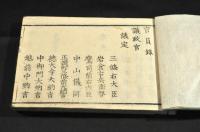 官員録
議政官
議定
三條右大臣
岩倉右兵衛督
中山儀同
正親町三條前大納言
徳大寺大納言
中御門大納言
越前中納言